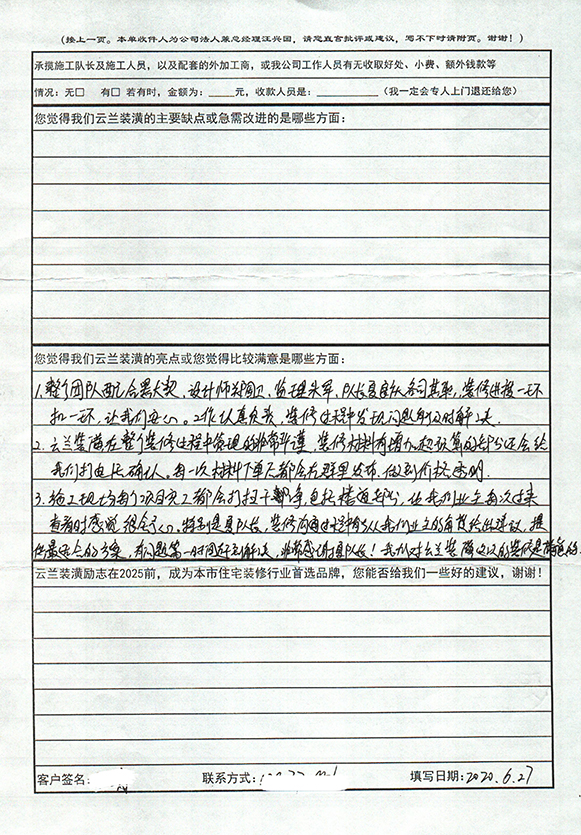 (接上一页。本单收件人为公司法人兼总经理汪兴国，请您直言批评或建议，写不下时请附页。谢谢！)
承揽施工队长及施工人员，以及配套的外加工商，或我公司工作人员有无收取好处、小费、额外钱款等
情况：无□ 有□ 若有时，金额为：____元，收款人是：__________（我一定会专人上门退还给您）
您觉得我们云兰装潢的主要缺点或急需改进的是哪些方面：
您觉得我们云兰装潢的亮点或您觉得比较满意是哪些方面：
1.整个团队配合默契，设计师 监理朱军，队长夏 各司其职，装修进程一环
扣一环，让我们安心。工作认真负责，装修过程中发现问题及时解决.
2.云兰装潢在整个装修过程中管理的非常严谨，装修材料有增加超预算的部分还会给
我们打电话确认。每一次材料下单天都会在群里发布，做到价格透明.
3.施工现场每个项目完工都会打扫干净，包括楼道部分，让我们业主每次过来
查看时感觉很舒心。特别是夏队长，装修 我们业主的角度给出建议，提
供最适合的方案，有问题第一时间 解决，非常感谢夏队长！我们对云兰装潢 的装修是满意的.
云兰装潢励志在2025前，成为本市住宅装修行业首选品牌，您能否给我们一些好的建议，谢谢！
客户签名： 联系方式： 填写日期：2020.6.27